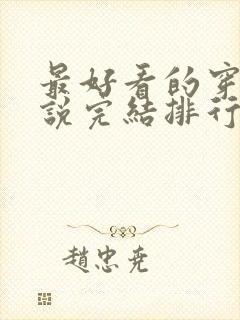 最好看的穿
說完結排行
趙忠堯